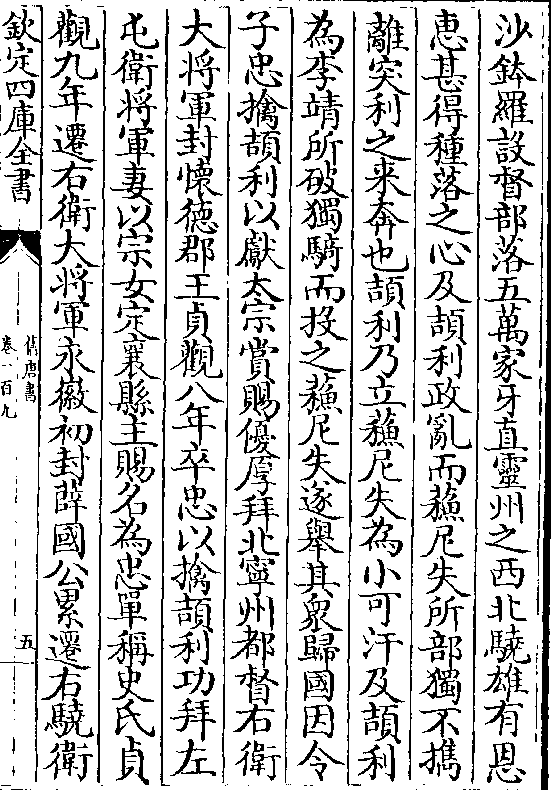 沙鉢羅設督部落五萬家牙直靈州之西北驍雄有恩
惠甚得種落之心及頡利政亂而蘓尼失所部獨不攜
離突利之来奔也頡利乃立蘓尼失為小可汗及頡利
為李靖所破獨騎而投之蘓尼失遂舉其衆歸國因令
子忠擒頡利以獻太宗賞賜優厚拜北寧州都督右衛
大将軍封懷徳郡王貞觀八年卒忠以擒頡利功拜左
屯衛将軍妻以宗女定襄縣主賜名為忠單稱史氏貞
觀九年遷右衛大将軍永徽初封薛國公累遷右驍衛
欽定四庫全書
舊唐書
卷一百九
五